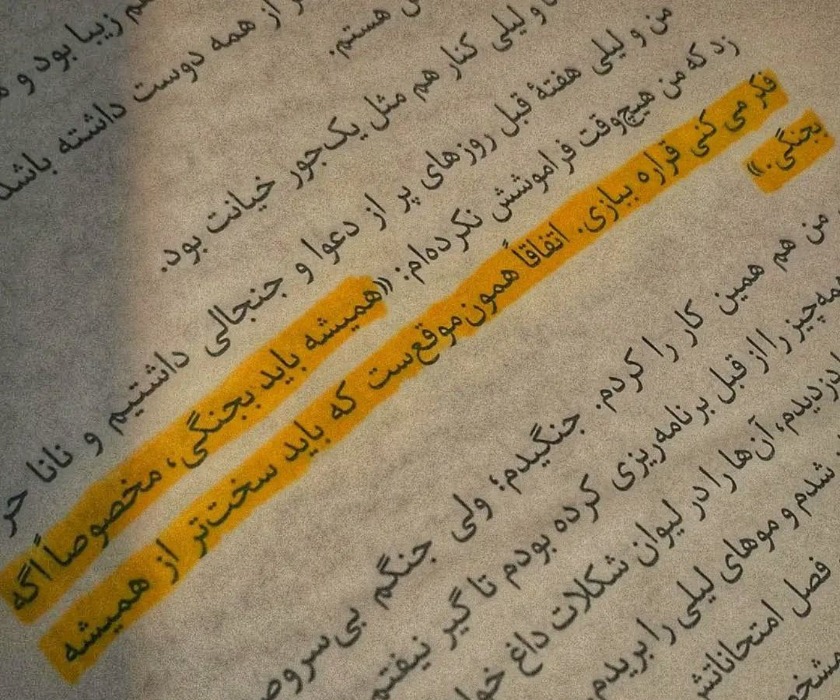 زیبا بود و
از همه دوست داشته باشد
هستم.
و لیلی کنار هم مثل یک‌جور خیانت بود.
من و لیلی هفتهٔ قبل روزهای پر از دعوا و جنجالی داشتیم و نانا حر
زد که من هیچ‌وقت فراموشش نکرده‌ام: «همیشه باید بجنگی، مخصوصاً اگه
فکر می‌کنی قراره ببازی. اتفاقاً همون‌موقع‌ست که باید سخت‌تر از همیشه
بجنگی.»
من هم همین کار را کردم. جنگیدم؛ ولی جنگم بی‌سروص
مه‌چیز را از قبل برنامه‌ریزی کرده بودم تا گیر نیفتم
دزدیدم، آن‌ها را در لیوان شکلات داغ
شدم و موهای لیلی را بریدم
فصل امتحاناتش